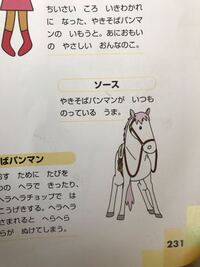 ちいさい ころ いきわかれ
に なった、やきそばパンマン
の いもうと。あにおもい
の やさしい おんなのこ。
ソース
やきそばパンマンが いつも
のっている うま。
ばパンマン
おす ために たびを
つの ヘラで きったり、
ヘラヘラチョップで は
こうげきする。ヘラヘラ
されまれると へらへら
らが ぬけてしまう。
231